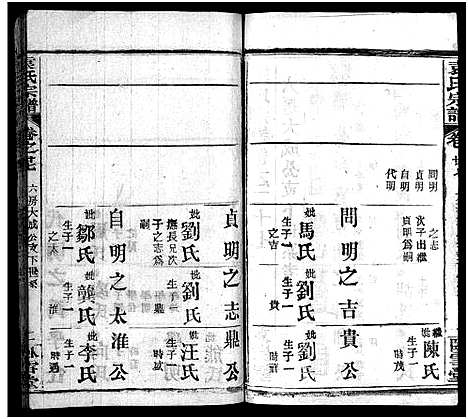 袁氏宗譜
卷之廿七
問明
貞明
自明
代明
次子出繼
貞明爲嗣
之志
妣陳氏
生子一
時茂
問明之吉貴公
妣馬氏
生子一
之吉
妣劉氏
生子一
貴
妣劉氏
生子一
時莊
貞明之志鼎公
妣劉氏
撫長兄次
子之志爲
嗣
妣劉氏
生子一
鼎
妣汪氏
生子一
時斌
自明之太淮公
妣鄒氏
生子一
之太
妣龔氏
生子一
淮
妣李氏
生子一
時遇
袁氏宗譜
卷之廿七
六房大成公支下世系
臥雪堂